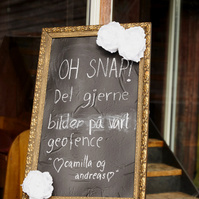 OH SNAP!
Del gjerne
bilder på vårt
geofence
"♡camilla og
andreas♡"